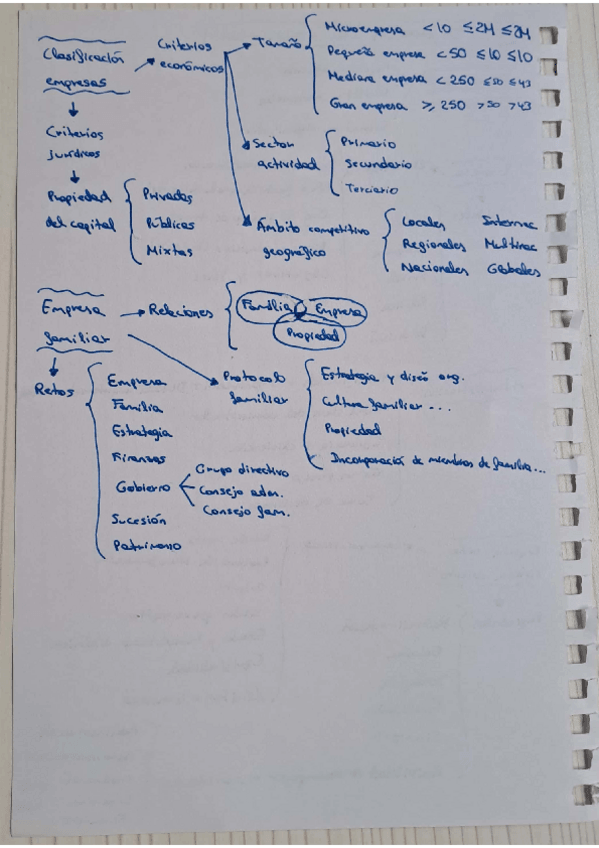 Clasificación empresas
Criterios económicos
Tamaño
Microempresa < 10 ≤ 2M ≤ 2M
Pequeña empresa < 50 ≤ 10 ≤ 10
Mediana empresa < 250 ≤ 50 ≤ 43
Gran empresa ≥ 250 > 50 > 43
Sector actividad
Primario
Secundario
Terciario
Ámbito competitivo geográfico
Locales Internac
Regionales Multinac
Nacionales Globales
Criterios jurídicos
Propiedad del capital
Privadas
Públicas
Mixtas
Empresa familiar
Relaciones
Familia Empresa
Propiedad
Protocolo familiar
Estrategia y diseño org.
Cultura familiar ...
Propiedad
Incorporación de miembros de familia...
Retos
Empresa
Familia
Estrategia
Finanzas
Gobierno
Grupo directivo
Consejo adm.
Consejo fam.
Sucesión
Patrimonio